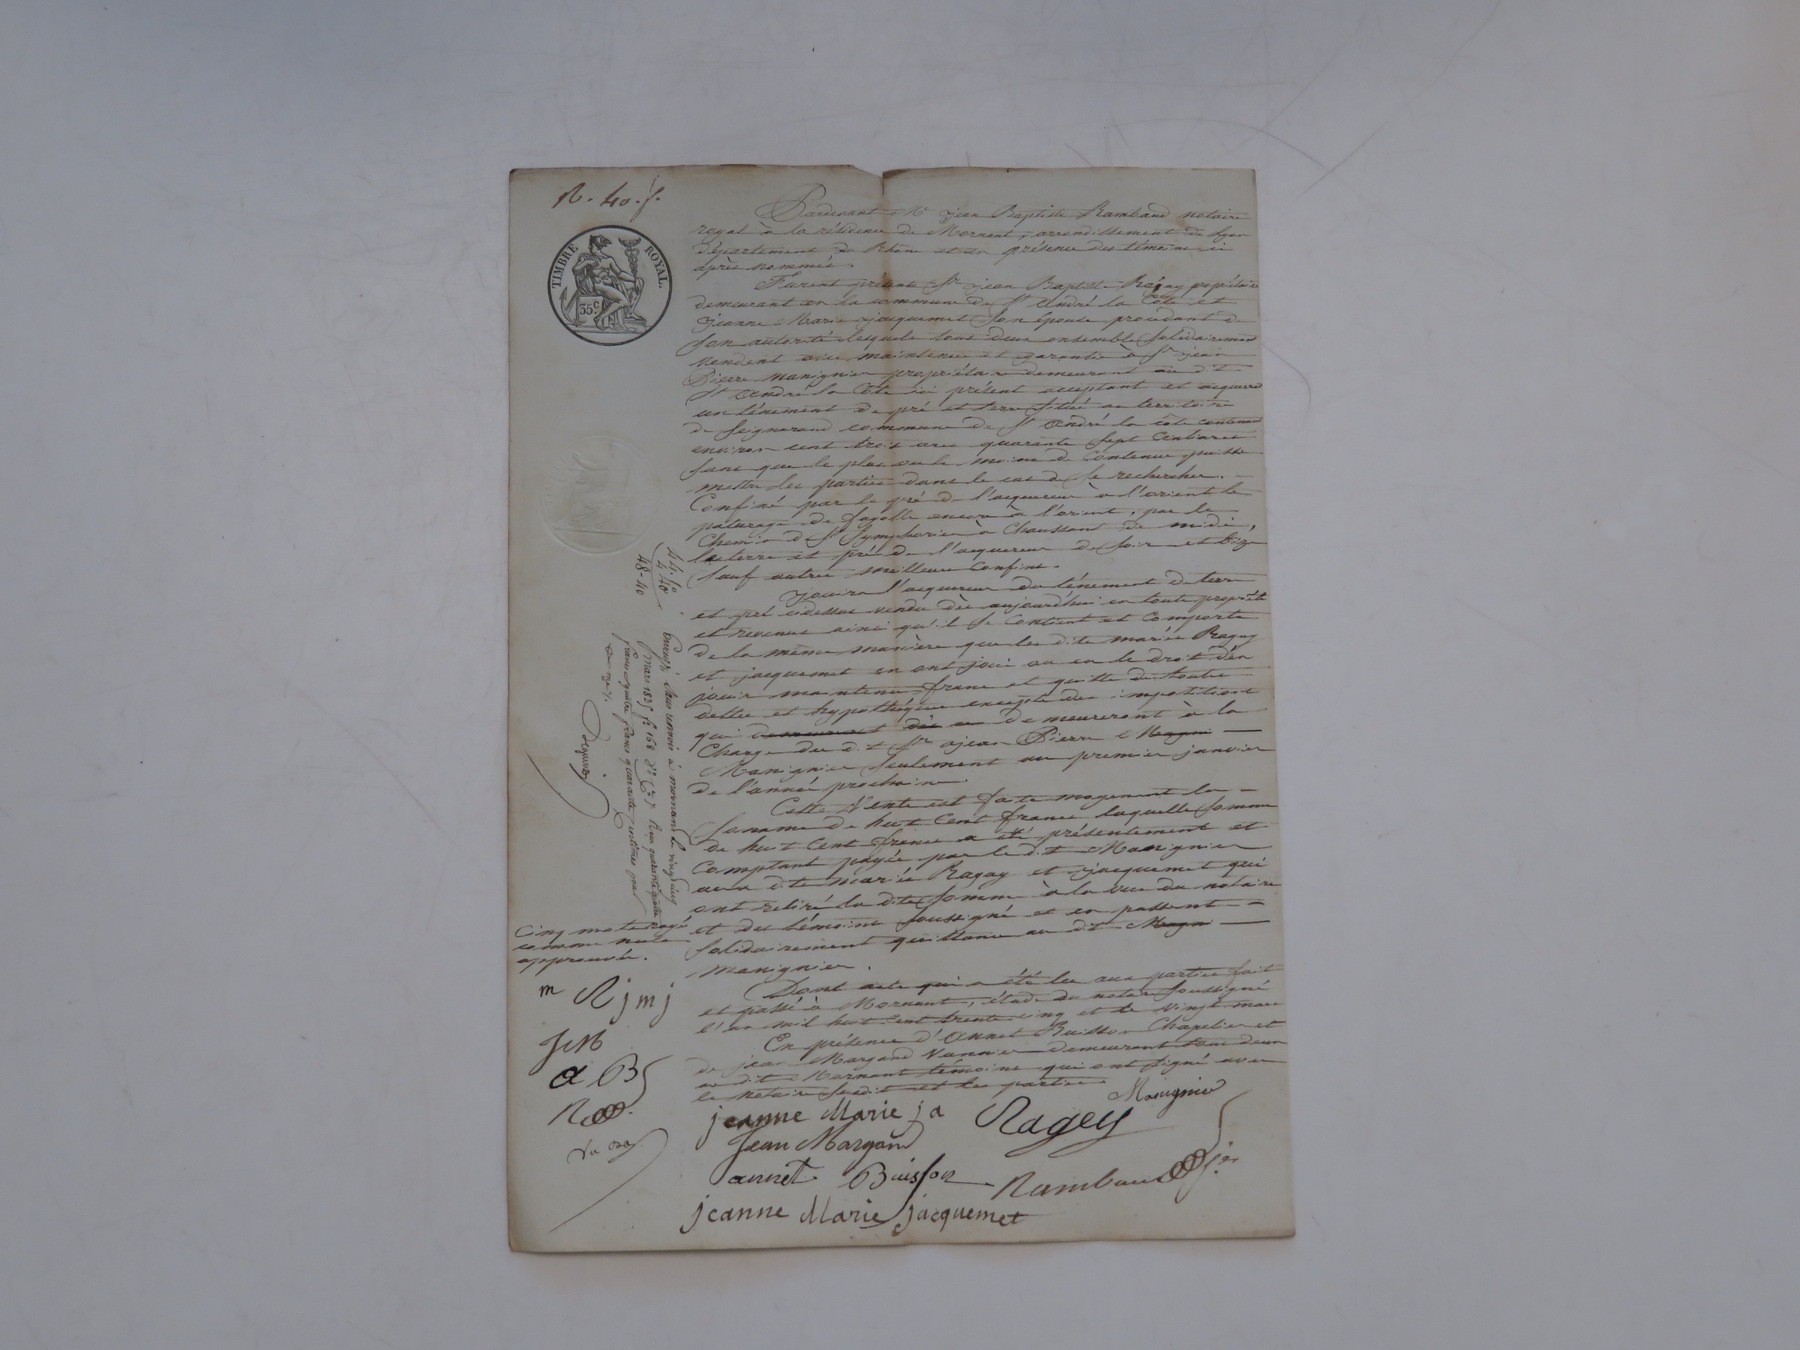 R. 40. f.
TIMBRE ROYAL.
35 c.
Pardevant Me jean Baptiste Rambaud notaire
royal à la résidence de Mornant, arrondissement de Lyon
Département du Rhône et en présence des témoins ci
après nommés.
Furent présent Sr jean Baptiste Ragey propriétaire
demeurant en la commune de St André la Côte et
Jeanne Marie jacquemet son épouse procédant de
son autorité lesquels tous deux ensemble solidairement
vendent avec maintenue et garantie à Sr jean
Pierre manignier propriétaire demeurant au dit
St André la Côte ici présent acceptant et acquereur
un ténement de pré et terre situé au territoire
de Seignerand commune de St André la côte contenant
environ cent trois ares quarante sept Centiares
sans que le plus ou le moins de Contenue puisse
mettre les parties dans le cas de se rechercher. —
Confiné par le pré de l'acquereur à l'orient le
paturage de fayolle encore à l'orient, par le
Chemin de St Symphorien à Chaussant de midi,
la terre et pré de l'acquereur de soir et bize
sauf autres meilleurs confins.
jouira l'acquereur du ténement de terre
et pré cidessus vendu dès aujourd'hui en toute proprieté
et revenus ainsi qu'il se contient et comporte
de la même manière que les dits mariés Ragey
et jacquemet en ont joui ou eu le droit d'en
jouir maintenu franc et quitte de toutes
dettes et hypothéques excepté des impositions
qui demeureront dès demeureront à la
Charge du dit Sr jean Pierre Magni —
Manignier seulement au premier janvier
de l'année prochaine.
Cette Vente est faite moyenant la —
somme de huit Cent francs laquelle somme
de huit Cent francs a été présentement et
Comptant payée par le dit Manignier
aux dits mariés Ragey et jacquemet qui
ont retiré la dite somme à la vue du notaire
et des témoins soussigné et en passent —
solidairement quittance au dit Magn —
manignier.
Dont acte qui a été lu aux parties fait
et passé à Mornant, étude du notaire soussigné
l'an mil huit cent trente cinq et le vingt mars
En présence d'Annet Buisson Chapelier et
de jean Margand Vannier demeurant tous deux
au dit Mornant témoins qui ont signé avec
le notaire susdit et les parties
44. fo
4 40
48-40
Enregé sans renvoi à mornant le vingt cinq
mars 1835 fo 168 Ro Cse 7 Reçu quarante quatre
francs quatre francs quarante centimes pour
Cinq mots rayés
comme nuls
approuvés.
m R j m j
J M
a B
R
jeanne Marie ja
Manignier
Ragey
Jean Margand
annet Buisson
Rambaud
jeanne Marie jacquemet